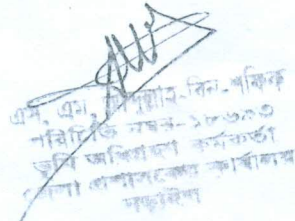 এস, এম, আব্দুল্লাহ-বিন-শফিক
পরিচিতি নম্বর-১৮৬০৩
ভূমি অধিগ্রহণ কর্মকর্তা
জেলা প্রশাসকের কার্যালয়